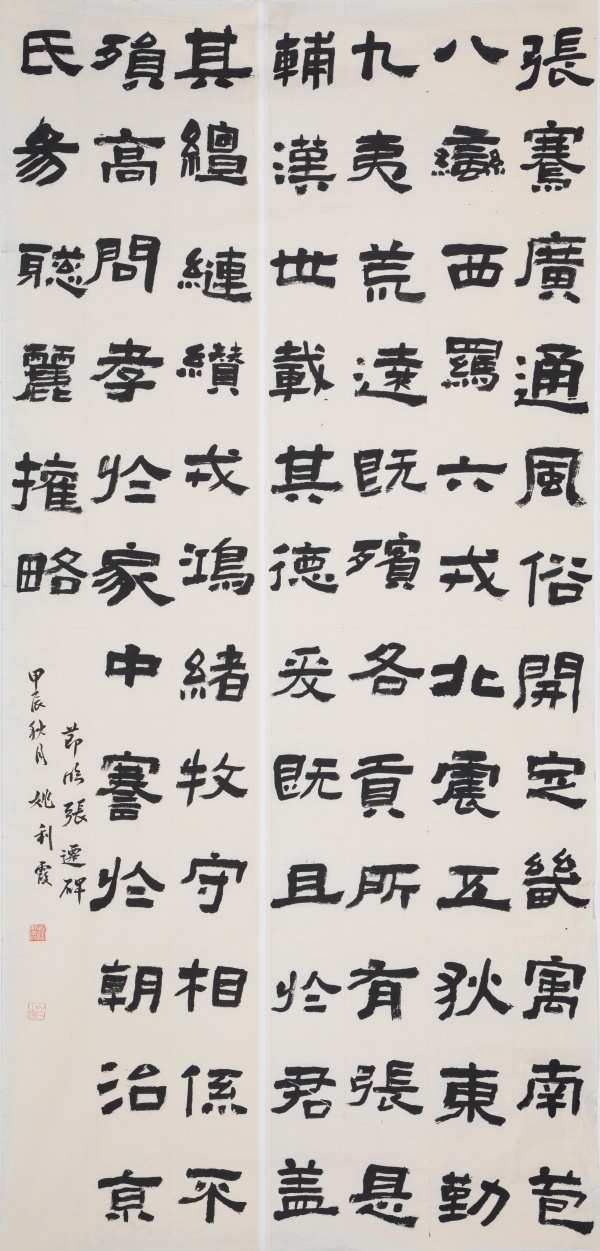 張騫廣通風俗開定畿寓南苞
八蠻西羈六戎北震五狄東勤
九夷荒遠既殯各貢所有張是
輔漢世載其德爰既且於君盖
其繵縺纘戎鴻緒牧守相係不
殞高問孝於家中謇於朝治京
氏易聰麗攉略
節臨張遷碑
甲辰秋月姚利霞